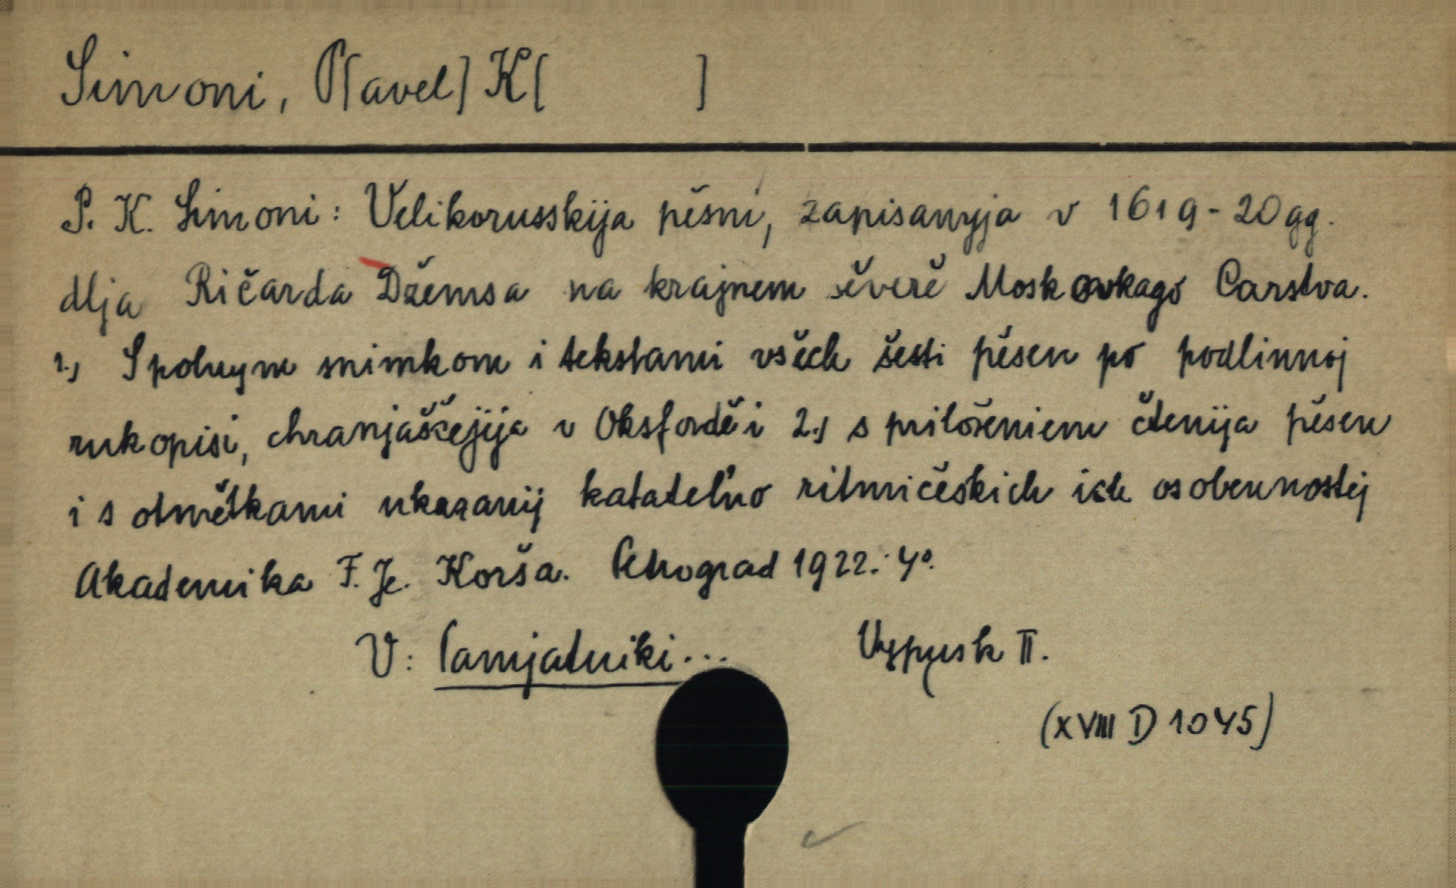 Simoni, P[avel] K[ ]
P. K. Simoni: Velikorusskija pěsni, zapisanyja v 1619-20 gg.
dlja Ričarda Džemsa na krajnem sěverě Moskovkago Carstva.
1.) S polnym snimkom i tekstami všěch šesti pěsen po podlinnoj
rukopisi, chranjaščejsja v Oksfordě i 2.) s priloženiem čtenija pěsen
i s otmětkami ukazanij katateľno ritmičeskich ich osobennostej
Akademika F. Je. Korša. Petrograd 1922. 4°.
V: Pamjatniki... Vypusk II.
(XVIII D 1045)